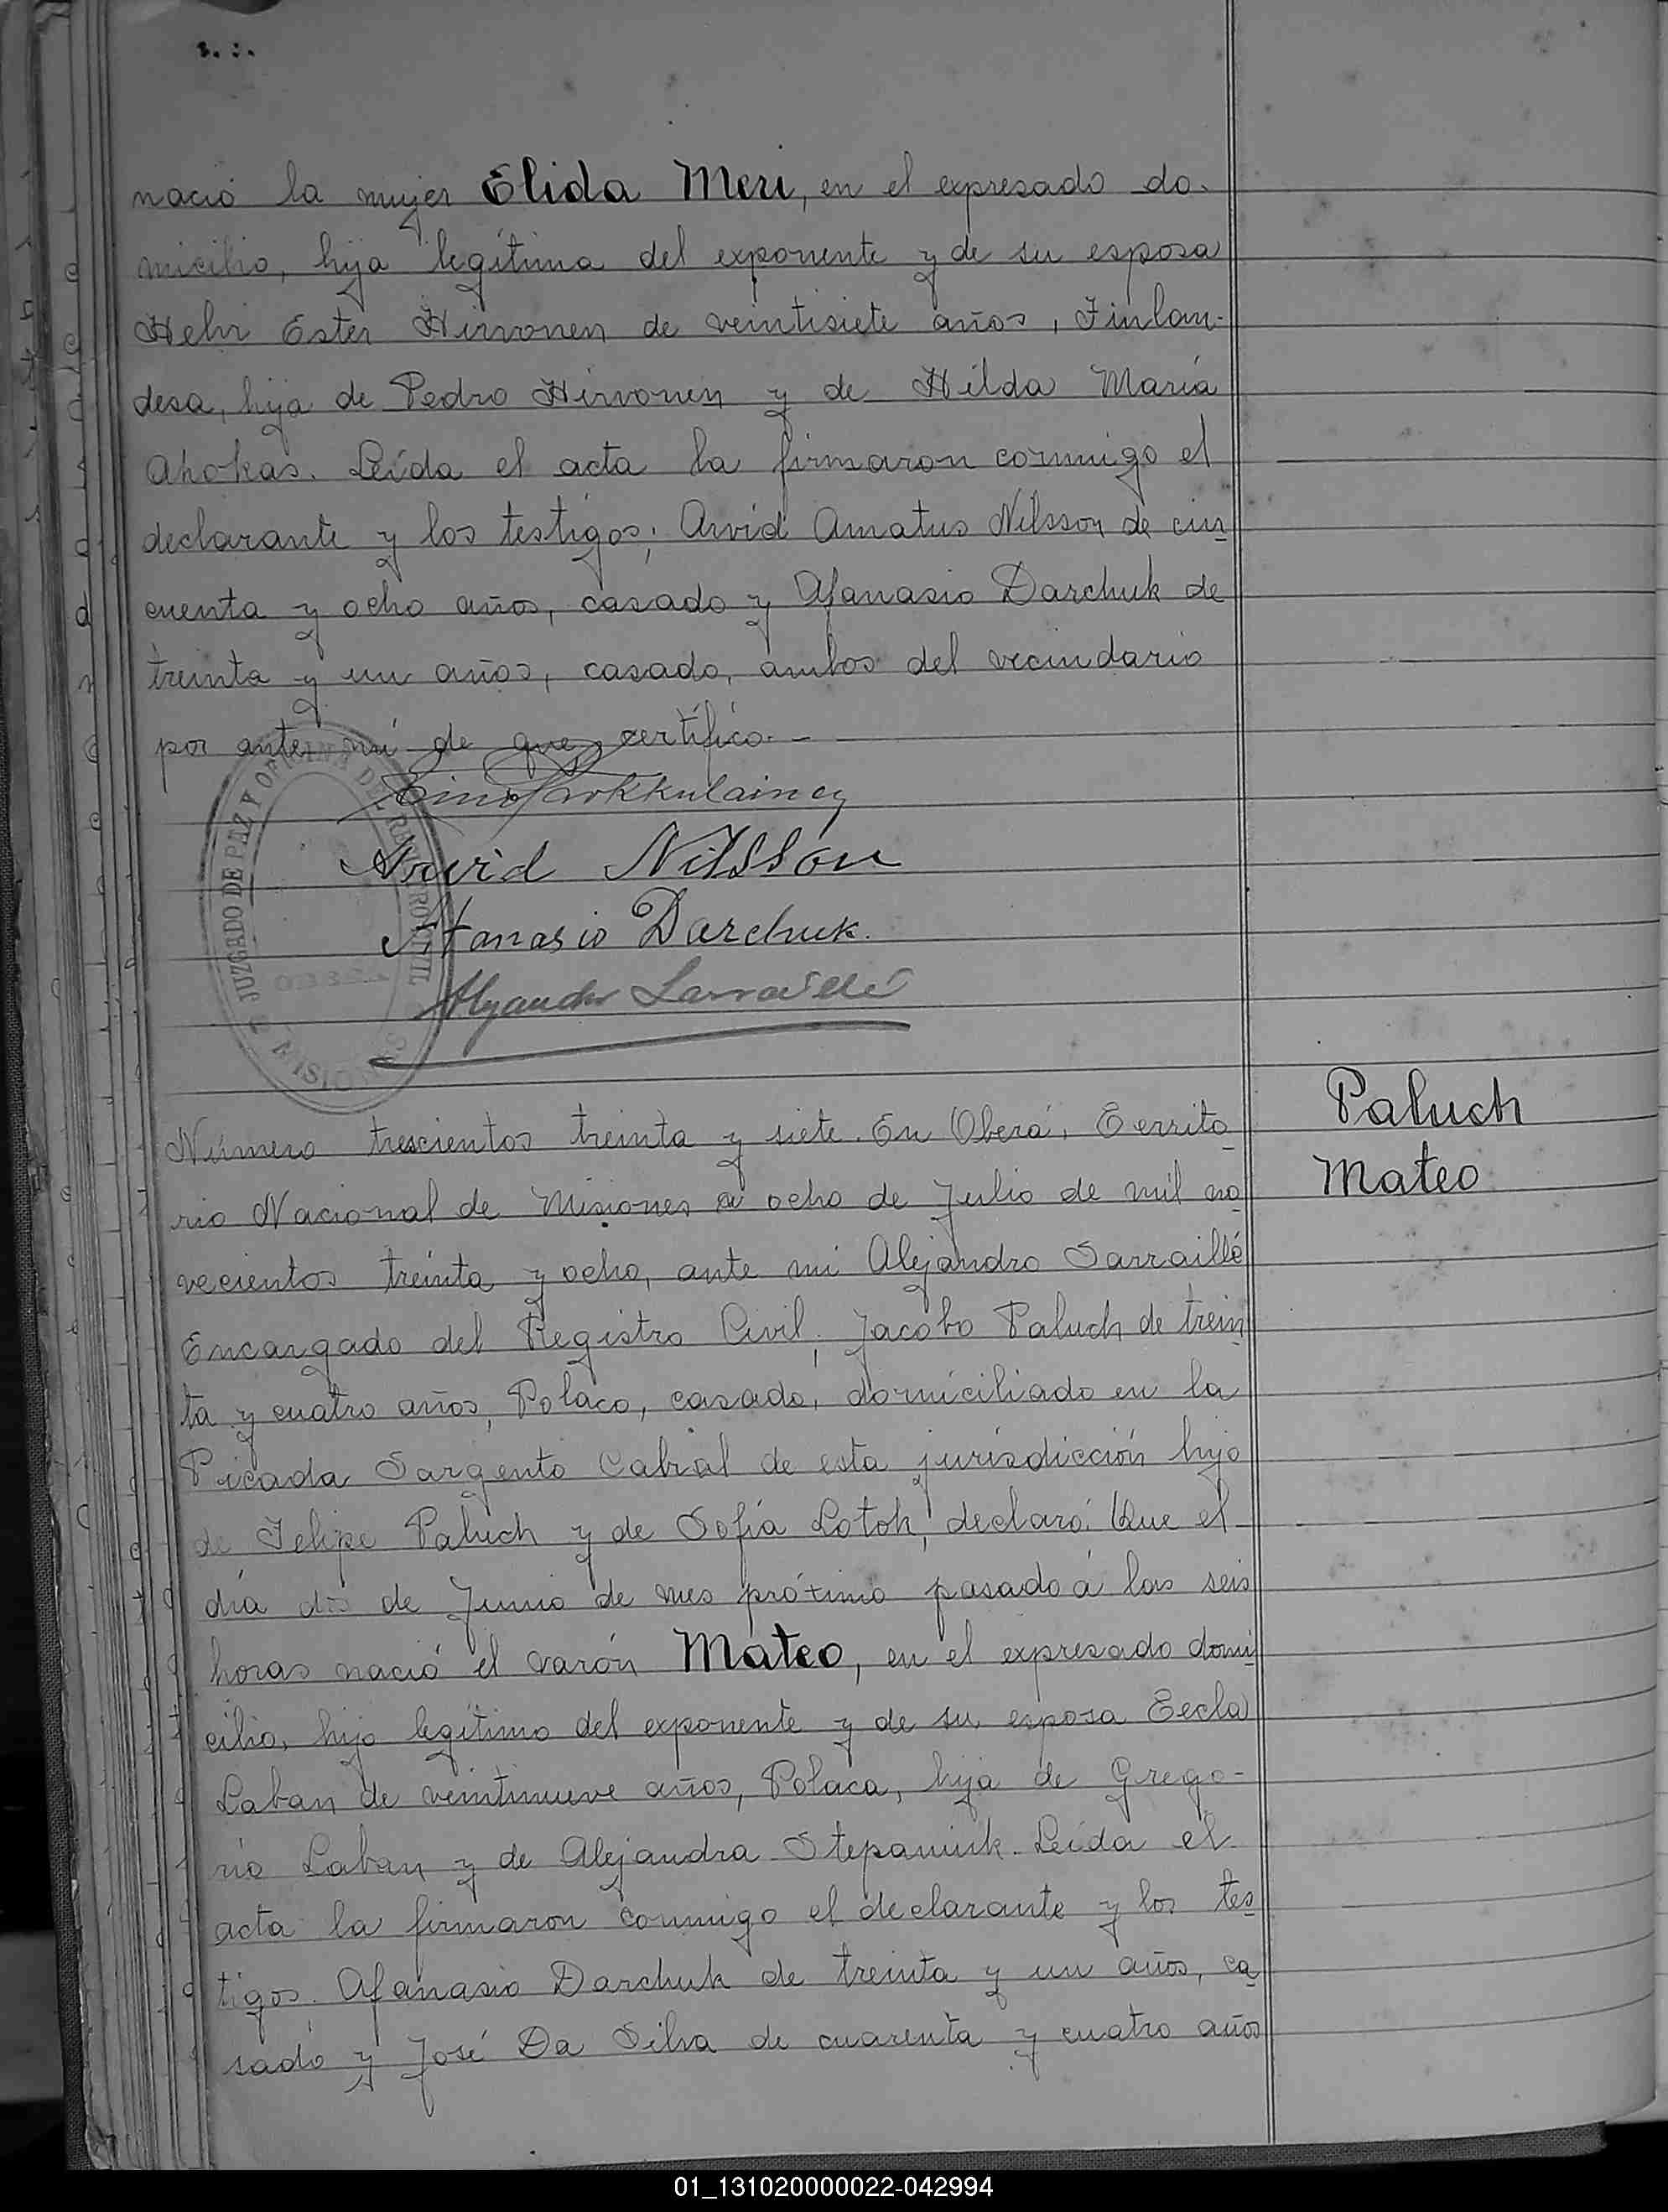 nació la mujer Elida Meri, en el expresado do-
micilio, hija legítima del exponente y de su esposa
Helvi Ester Hirvonen de veintisiete años, Finlan-
desa, hija de Pedro Hirvonen y de Hilda María
Ahokas. Leída el acta la firmaron conmigo el
declarante y los testigos; Arvid Amatus Nilsson de cin
cuenta y ocho años, casado y Afanasio Darchuk de
treinta y un años, casado, ambos del vecindario
por ante mí de que certifico.-
Arvid Nilsson
Afanasio Darchuk.
Alejandro Sarraillé
JUZGADO DE PAZ Y OFICINA DEL REGISTRO CIVIL
MISIONES
Número trescientos treinta y siete. En Oberá, Territo
rio Nacional de Misiones a ocho de Julio de mil no
vecientos treinta y ocho, ante mi Alejandro Sarraillé
Encargado del Registro Civil; Jacobo Paluch de trein
ta y cuatro años, Polaco, casado, domiciliado en la
Picada Sargento Cabral de esta jurisdicción hijo
de Felipe Paluch y de Sofía Lotok, declaró: Que el
día dos de Junio de mes próximo pasado á las seis
horas nació el varón Mateo, en el expresado domi
cilio, hijo legítimo del exponente y de su esposa Tecla
Laban de veintinueve años, Polaca, hija de Grego-
rio Laban y de Alejandra Stepaniuk. Leída el
acta la firmaron conmigo el declarante y los tes
tigos. Afanasio Darchuk de treinta y un años, ca
sado y José Da Silva de cuarenta y cuatro años
Paluch
Mateo
01_131020000022-042994